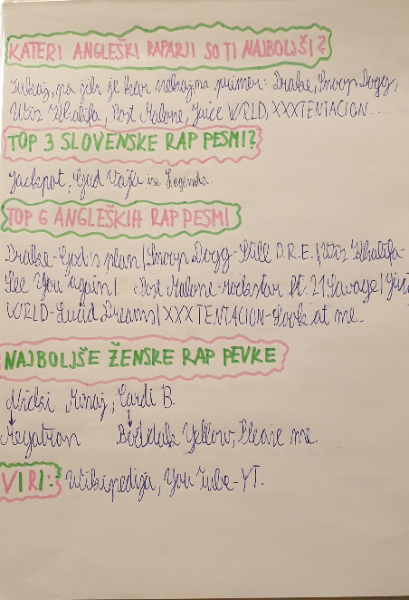 KATERI ANGLEŠKI RAPARJI SO TI NAJBOLJŠI?
je kar nekaj na primer: Drake, Snoop Dogg,
Wiz Khalifa, Post Malone, Juice WRLD, XXXTENTACION....
TOP 3 SLOVENSKE RAP PESMI?
Jackpot, Gud Vajb in Legenda.
TOP 6 ANGLEŠKIH RAP PESMI
Drake-God's plan|Snoop Dogg-Still D.R.E.|Wiz Khalifa-
See You Again| Post Malone-Rockstar ft. 21 Savage|Juice
WRLD-Lucid Dreams|XXXTENTACION-Look at me.
NAJBOLJŠE ŽENSKE RAP PEVKE
Nicki Minaj, Cardi B.
Megatron Boddak Yellow, Please me
VIRI: Wikipedija, YouTube-YT.